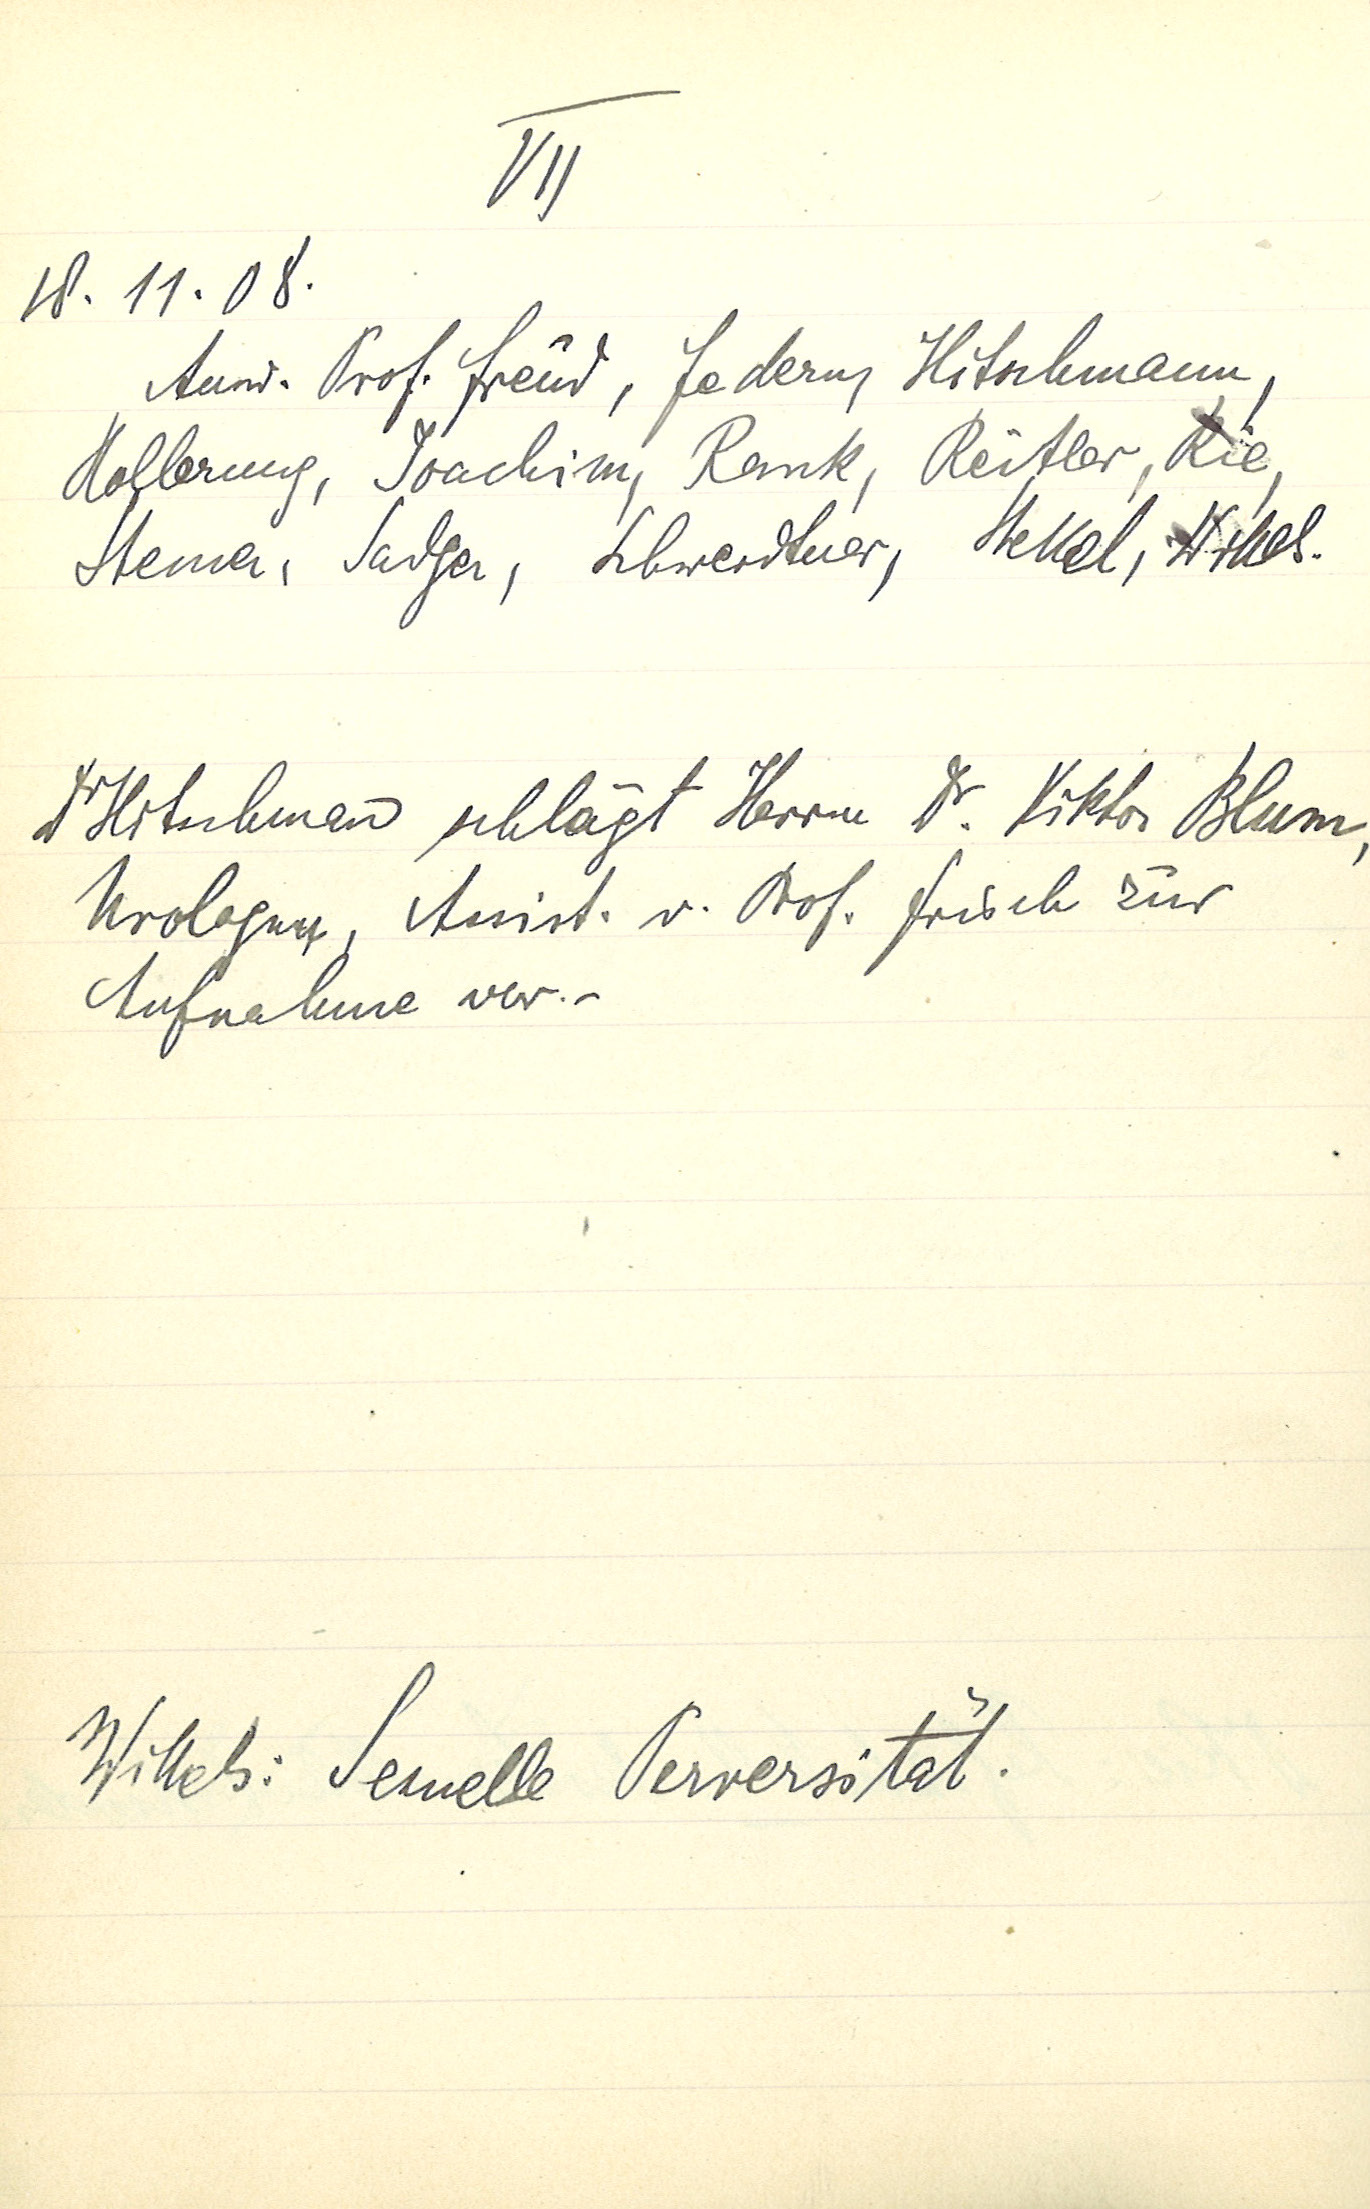 VII
18. 11. 08.
Anw. Prof. Freud, Federn, Hitschmann,
Hollerung, Joachim, Rank, Reitler, Rie,
Steiner, Sadger, Schwerdtner, Stekel, Wittels.
Dr Hitschman̄ schlägt Herrn Dr. Viktor Blum,
Urologen, Assist. v. Prof. Frisch zur
Aufnahme vor. -
Wittels: Sexuelle Perversität.